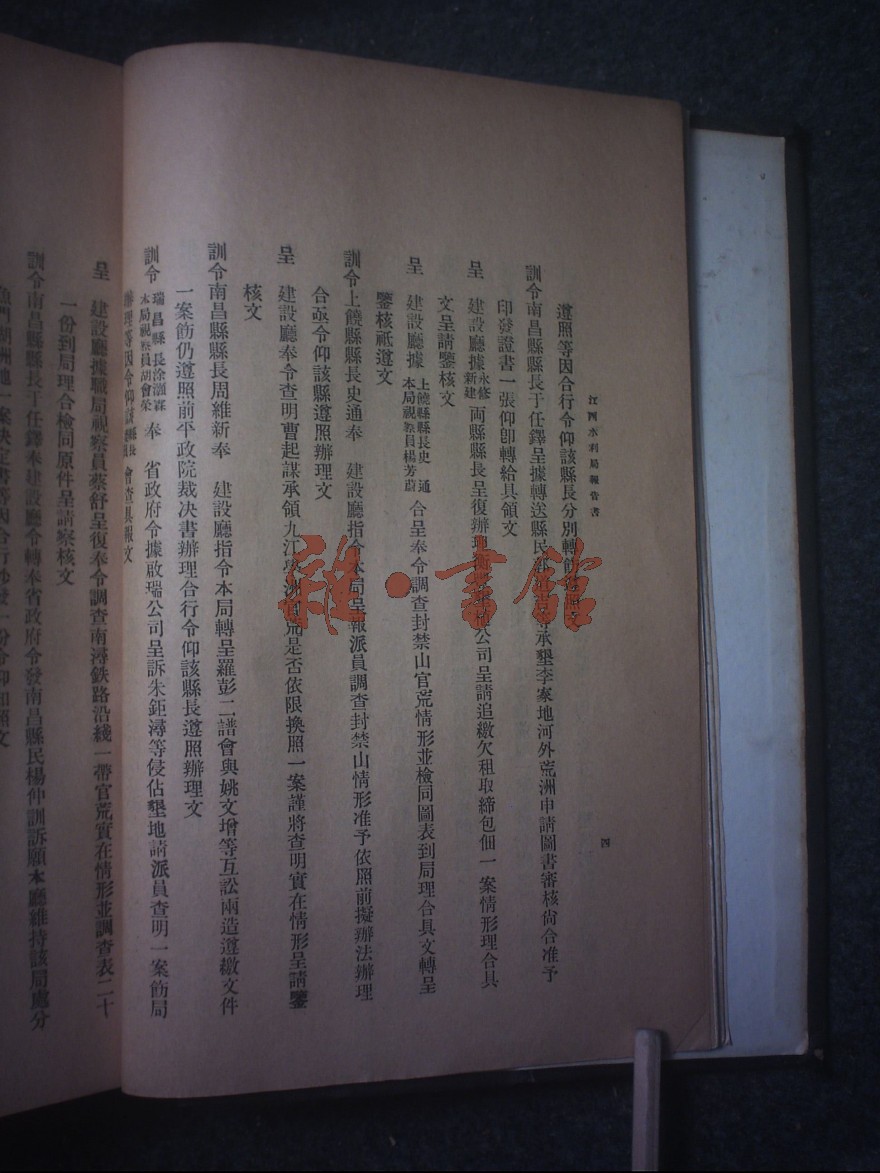 江西水利局報告書
四
遵照等因合行令仰該縣長分別轉飭遵照文
訓令南昌縣縣長于任鐸呈據轉送縣民 承墾李家地河外荒洲申請圖書審核尙合准予
印發證書一張仰卽轉給具領文
呈 建設廳據永修新建兩縣縣長呈復辦理 公司呈請追繳欠租取締包佃一案情形理合具
文呈請鑒核文
呈 建設廳據上饒縣縣長史通本局視察員楊芳蔚合呈奉令調查封禁山官荒情形並檢同圖表到局理合具文轉呈
鑒核祇遵文
訓令上饒縣縣長史通奉 建設廳指令本局呈報派員調查封禁山情形准予依照前擬辦法辦理
合亟令仰該縣遵照辦理文
呈 建設廳奉令查明曹起謀承領九江 洲官荒是否依限換照一案謹將查明實在情形呈請鑒
核文
訓令南昌縣縣長周維新奉 建設廳指令本局轉呈羅彭二譜會與姚文增等互訟兩造遵繳文件
一案飭仍遵照前平政院裁决書辦理合行令仰該縣長遵照辦理文
訓令瑞昌縣長徐灝霖本局視察員胡會榮奉 省政府令據啟瑞公司呈訴朱鉅潯等侵佔墾地請派員查明一案飭局
辦理等因令仰該縣長 會查具報文
呈 建設廳據職局視察員蔡舒呈復奉令調查南潯鉄路沿綫一帶官荒實在情形並調查表二十
一份到局理合檢同原件呈請察核文
訓令南昌縣縣長于任鐸奉建設廳令轉奉省政府令發南昌縣民楊仲訓訴願本廳維持該局處分
魚門湖洲地一案決定書等因合行抄發一份令仰知照文
雜·書館